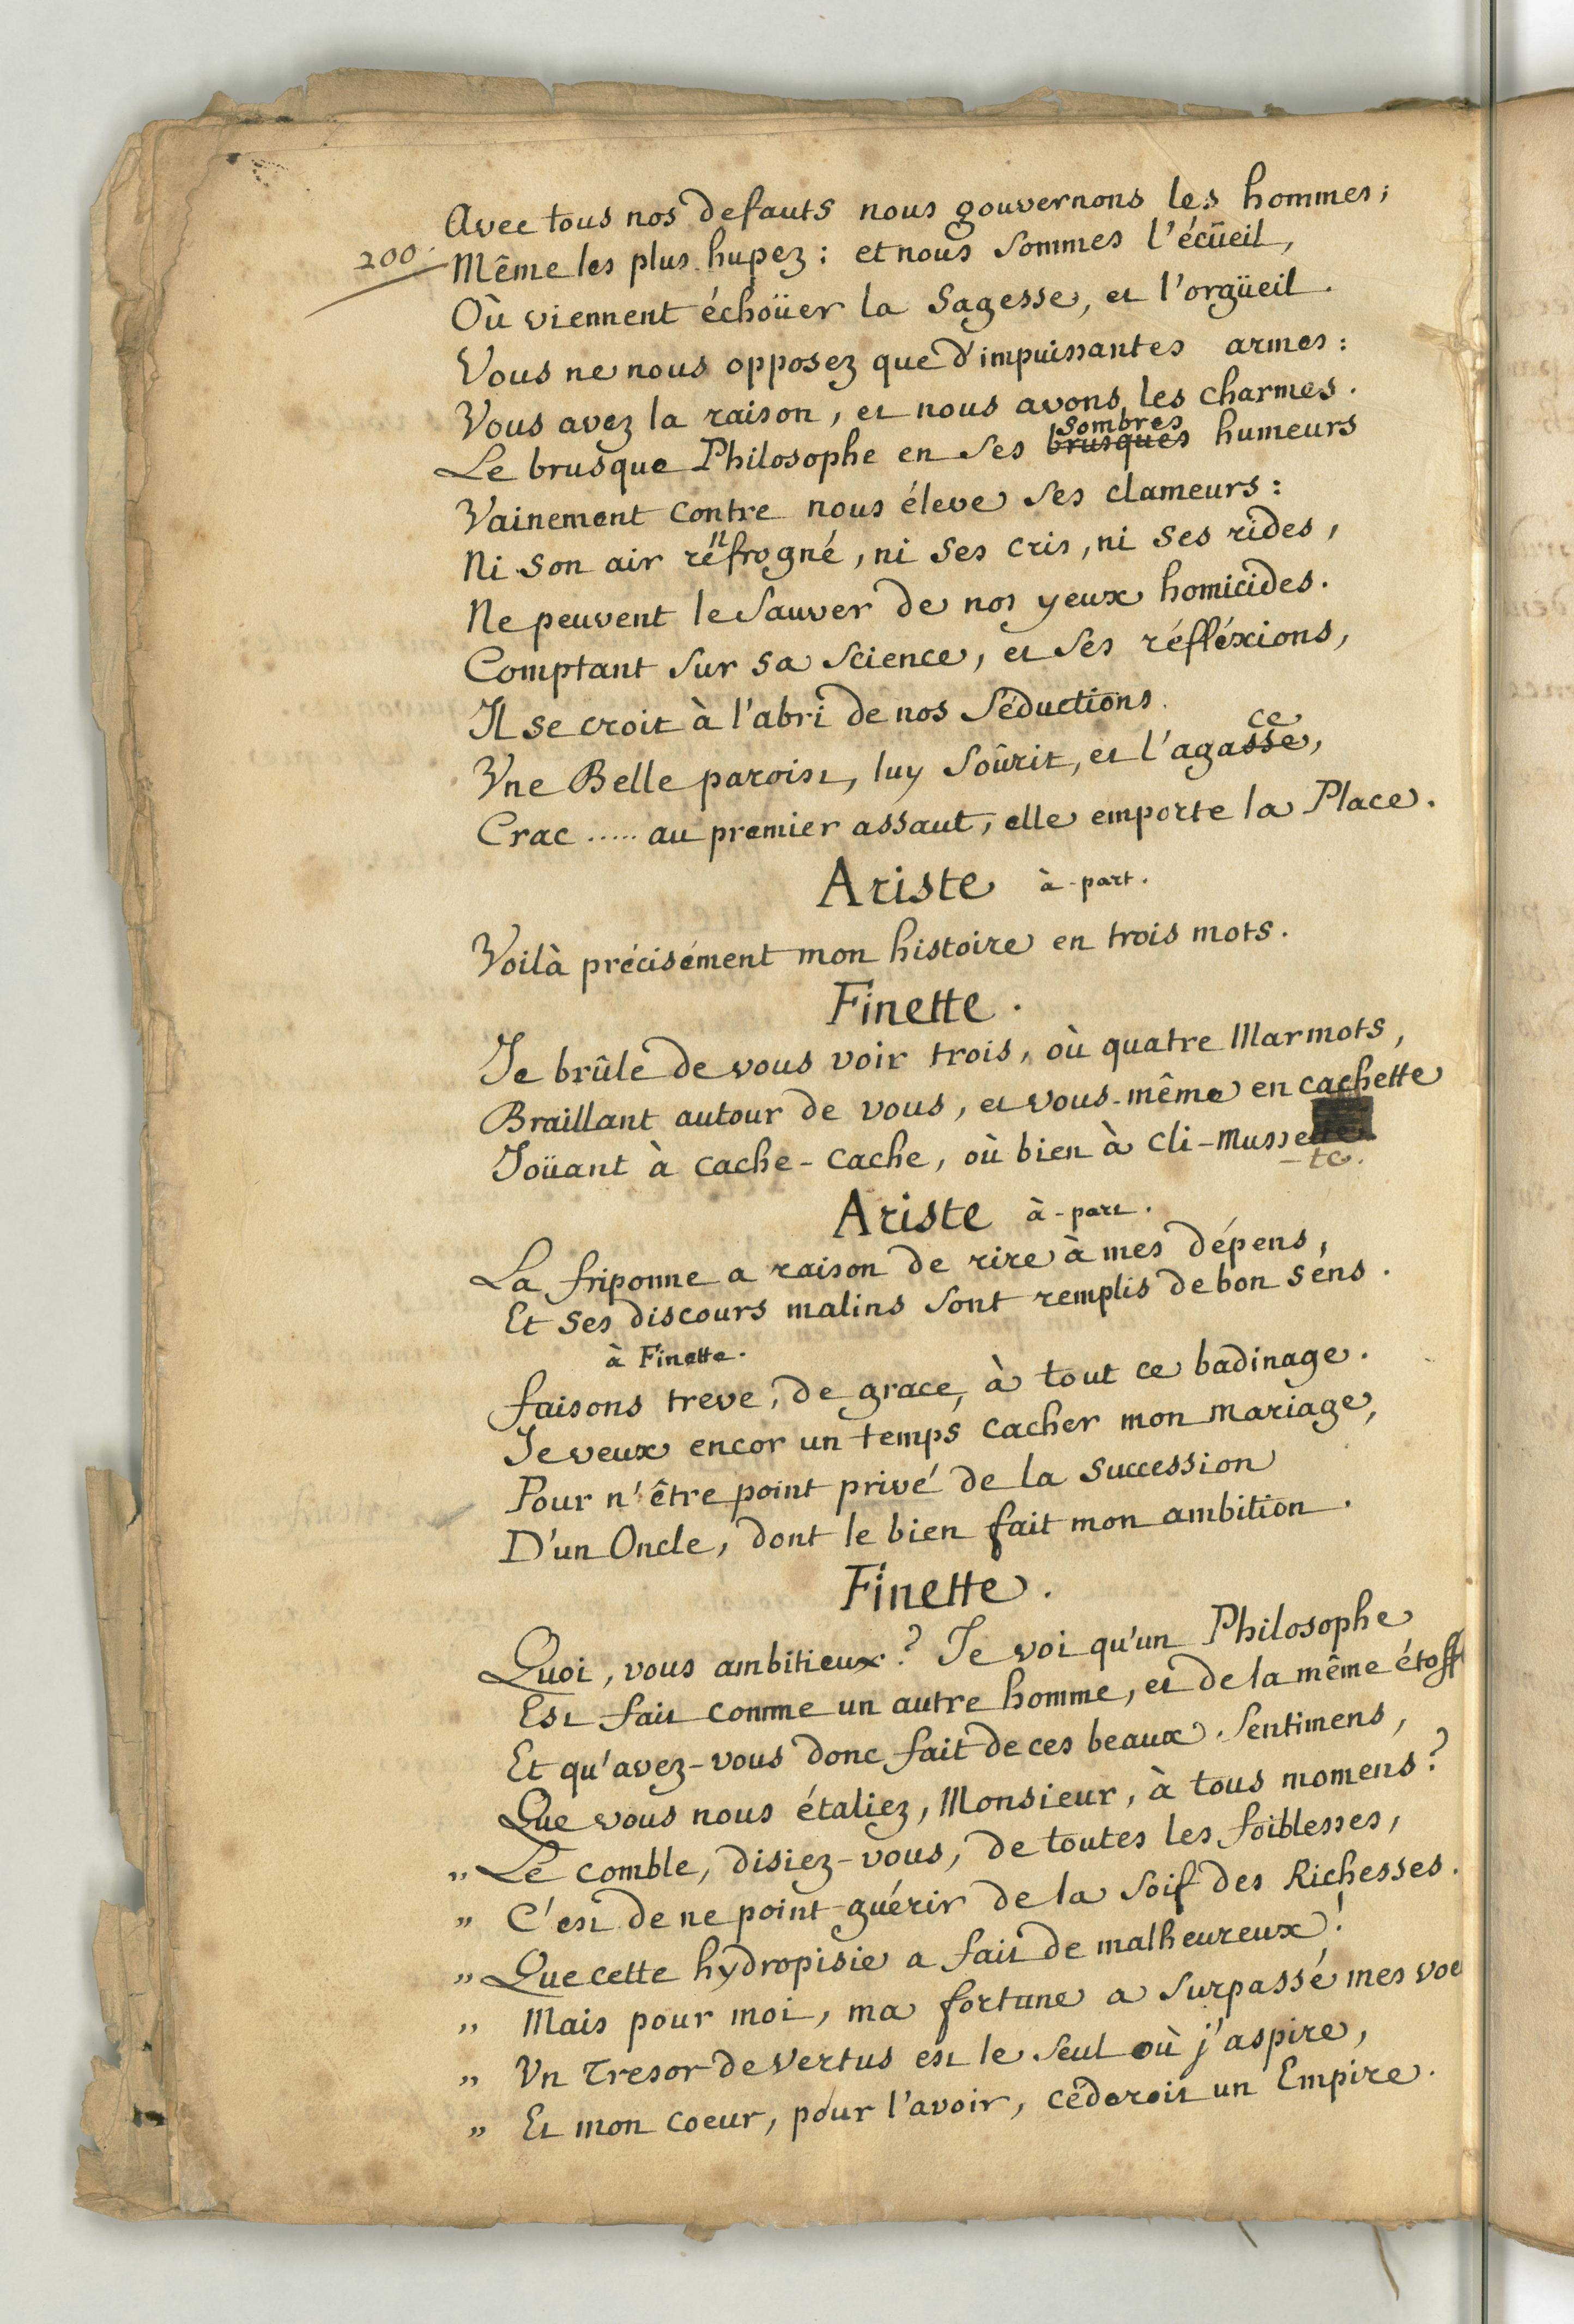 Avec tous nos defauts nous gouvernons les hommes;
200. Même les plus hupez : et nous sommes l'écüeil,
Où viennent échoüer la Sagesse, et l'orgüeil.
Vous ne nous opposez que d'impuissantes armes :
Vous avez la raison, et nous avons les charmes.
sombres
Le brusque Philosophe en ses brusques humeurs
Vainement contre nous éleve ses clameurs :
n
Ni son air réfrogné, ni ses cris, ni ses rides,
Ne peuvent le sauver de nos yeux homicides.
Comptant sur sa science, et ses réfléxions,
Il se croit à l'abri de nos séductions.
ce
Vne Belle paroist, luy soûrit, et l'agasse,
Crac ..... au premier assaut, elle emporte la Place.
Ariste à-part.
Voilà précisément mon histoire en trois mots.
Finette.
Je brûle de vous voir trois, où quatre Marmots,
Braillant autour de vous, et vous-même en cachette
Joüant à cache-cache, où bien à cli-mussette
-te.
Ariste à-part.
La friponne a raison de rire à mes dépens,
Et ses discours malins sont remplis de bon sens.
à Finette.
faisons treve, de grace, à tout ce badinage.
Je veux encor un temps cacher mon mariage,
Pour n'être point privé de la succession
D'un Oncle, dont le bien fait mon ambition.
Finette.
Quoi, vous ambitieux ? Je voi qu'un Philosophe
Est fait comme un autre homme, et de la même étoff
Et qu'avez-vous donc fait de ces beaux sentimens,
Que vous nous étaliez, Monsieur, à tous momens ?
" Le comble, disiez-vous, de toutes les foiblesses,
" C'est de ne point guérir de la soif des Richesses.
" Que cette hydropisie a fait de malheureux !
" Mais pour moi, ma fortune a surpassé mes voe
" Vn Tresor de vertus est le seul où j'aspire,
" Et mon coeur, pour l'avoir, céderoit un Empire.